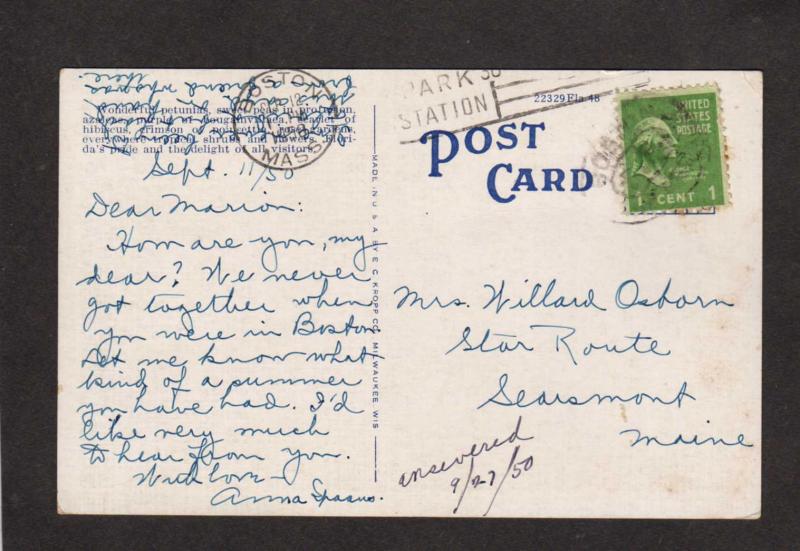 there.
Wonderful petunias, sweet peas in profusion,
azaleas, purple of bougainvillaea, scarlet of
hibiscus, crimson of poinsettia, rose gardens,
everywhere tropical shrubs and flowers. Flori-
da's pride and the delight of all visitors.
BOSTON
MASS
Sept. 11/50
Dear Marion:
How are you, my
dear? We never
got together when
you were in Boston.
Let me know what
kind of a summer
you have had. I'd
like very much
to hear from you.
With love—
Anna
MADE IN U S A BY E. C. KROPP CO., MILWAUKEE, WIS.
PARK
STATION
22329 Fla 48
POST
CARD
UNITED
STATES
POSTAGE
1 CENT 1
Mrs. Willard Osborn
Star Route
Searsmont
Maine
answered
9/27/50